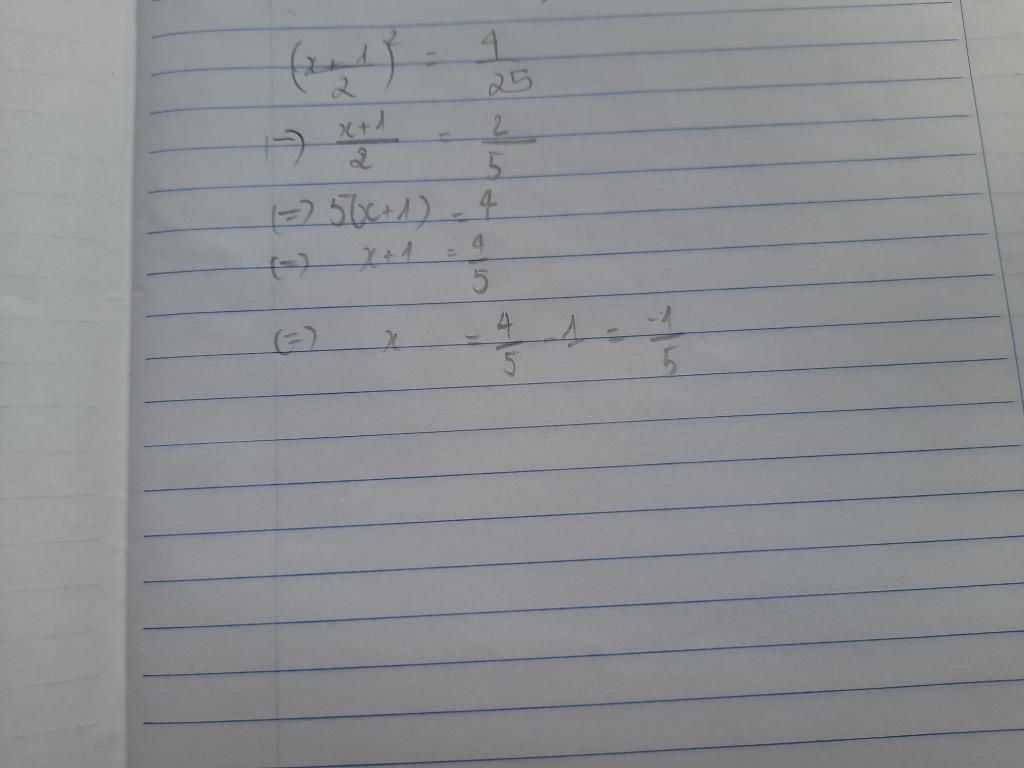 (x+1/2)² = 4/25
(=) x+1/2 = 2/5
(=) 5(x+1) = 4
(=) x+1 = 4/5
(=) x = 4/5 - 1 = -1/5